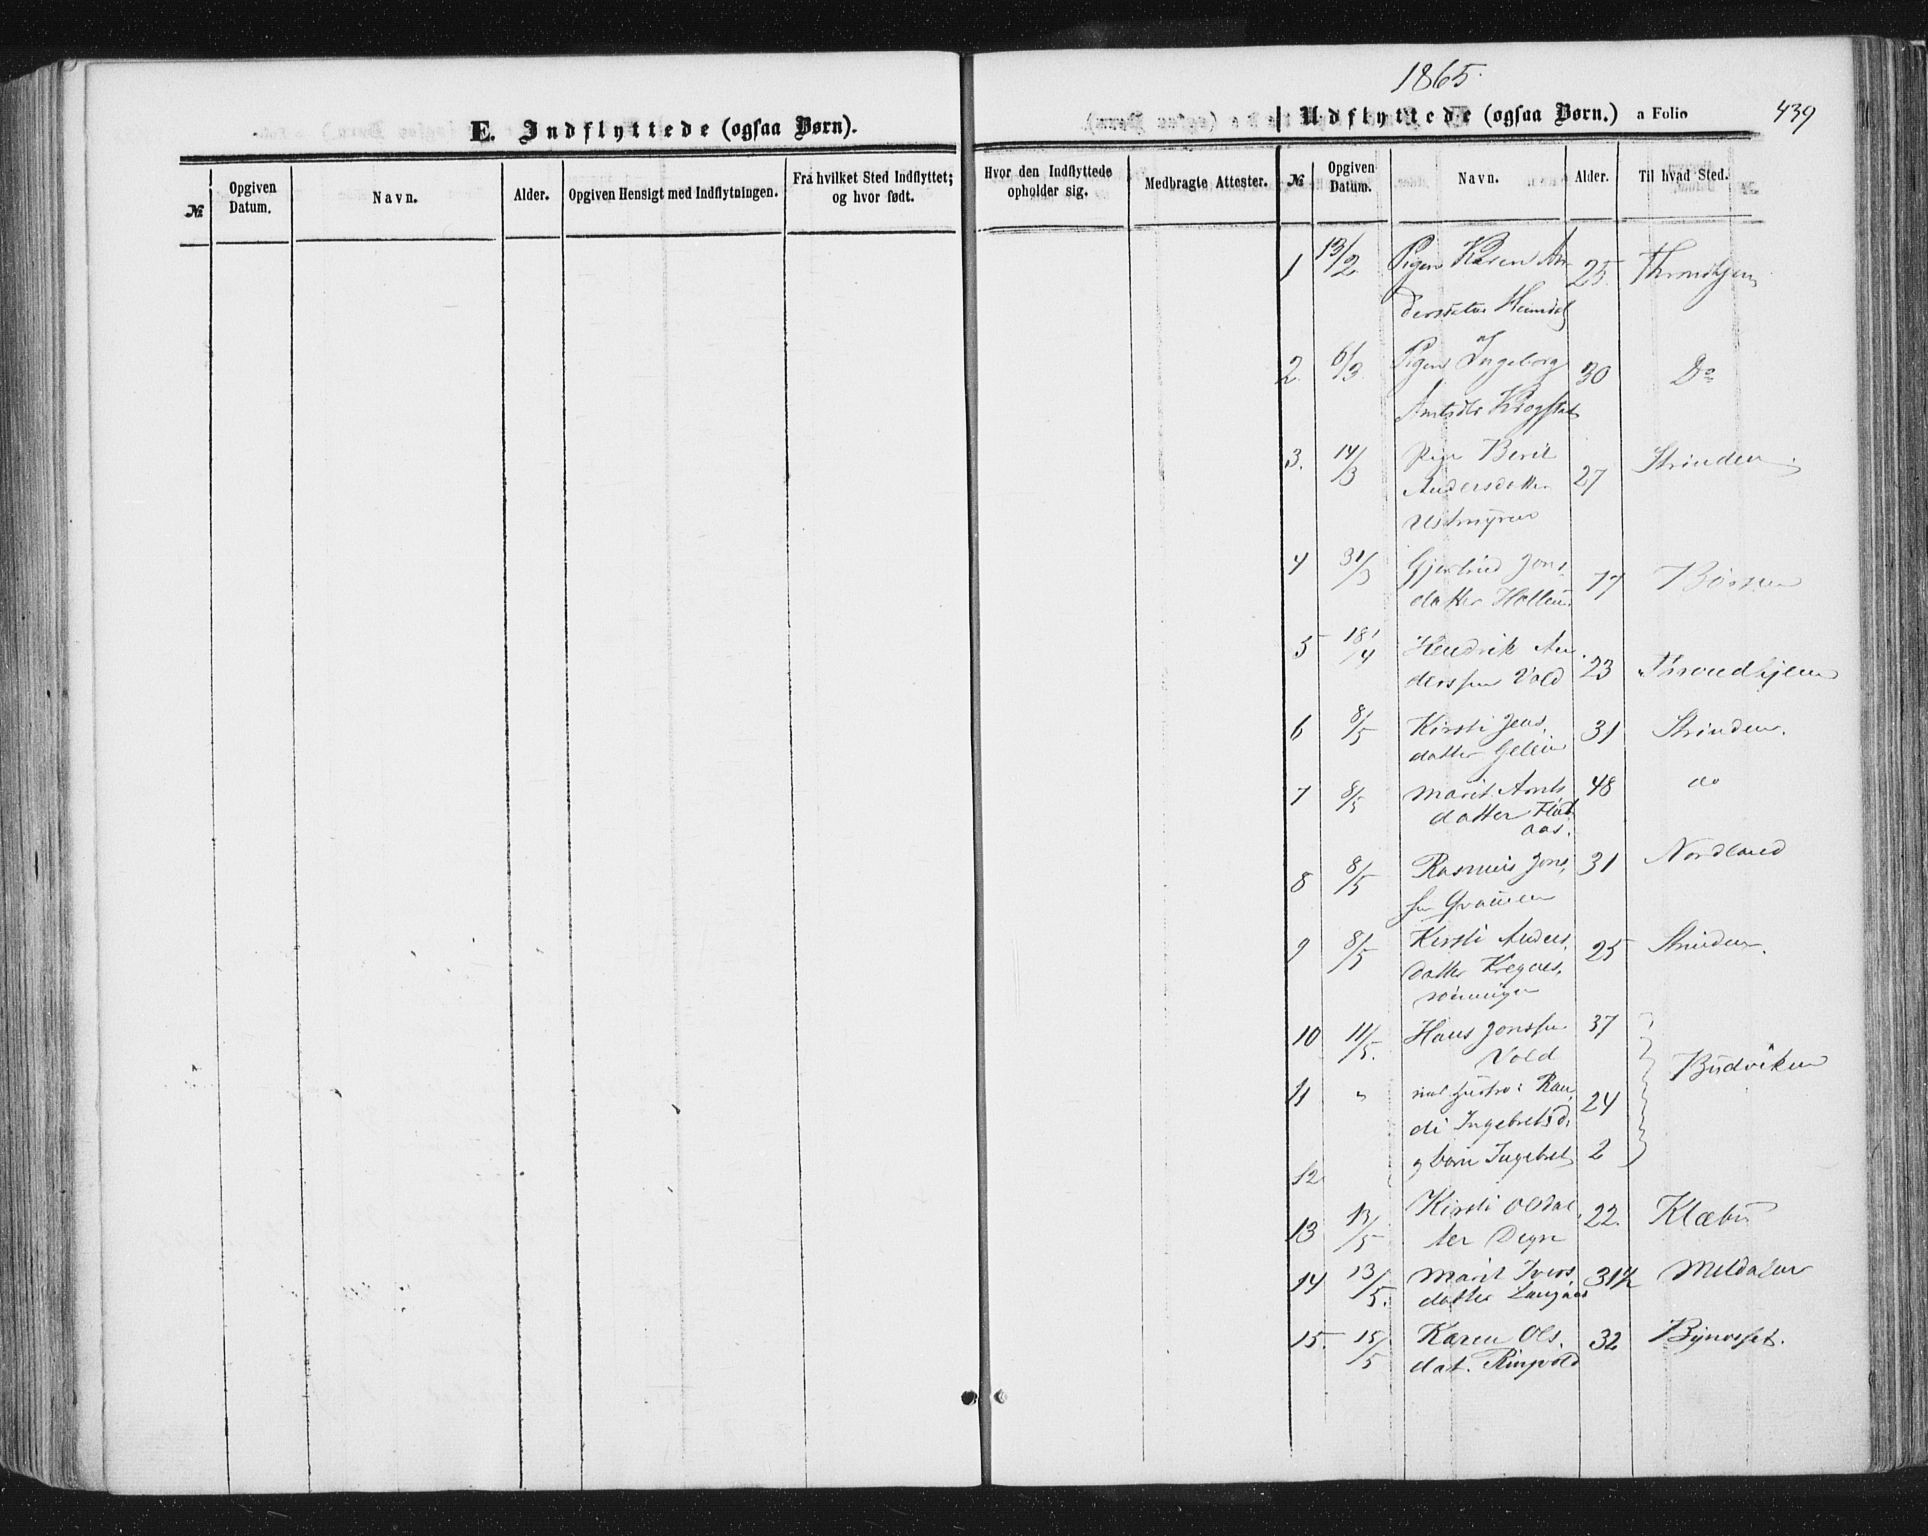 1865.
E. Indflyttede (ogsaa Børn).
Udflyttede (ogsaa Børn.) a Folio 439
№ Opgiven Datum. Navn. Alder. Opgiven Hensigt med Indflytningen. Fra hvilket Sted Indflyttet; og hvor født. Hvor den Indflyttede opholder sig. Medbragte Attester.
№ Opgiven Datum. Navn. Alder. Til hvad Sted.
1 13/2 Pigen Karen An- 25 Throndhjem
dersdatter Heimdal
2. 6/3 Pigen Ingeborg 30 Do
Arntsdtr Krogstad
3. 14/3 Pige Berit 27 Strinden
Andersdatter
Ustmyren
4 31/3 Gjertrud Jons- 17 Børsen
datter
5 18/4 Hendrik An- 23 Throndhjem
derssen Vold
6 8/5 Kirsti Jens- 31 Strinden.
datter
7 8/5 Marit Arnts 48 do
datter Flat
aas.
8 8/5 Rasmus Jons- 31 Nordland
sen
9 8/5 Kirsti Anders- 25 Strinden.
datter
10 11/5. Hans Jonssen 37
Vold
Budviken
11 " med Hustro: Ran- 24
di Ingebretsd.
12 og barn Ingebret 2
13 13/5 Kirsti Olsdat- 22. Klæbu
ter Degn
14 13/5. Marit Ivers 31½ Meldalen
datter Langaas
15. 15/5 Karen Ols- 32 Bynesset.
dat. Ringvold